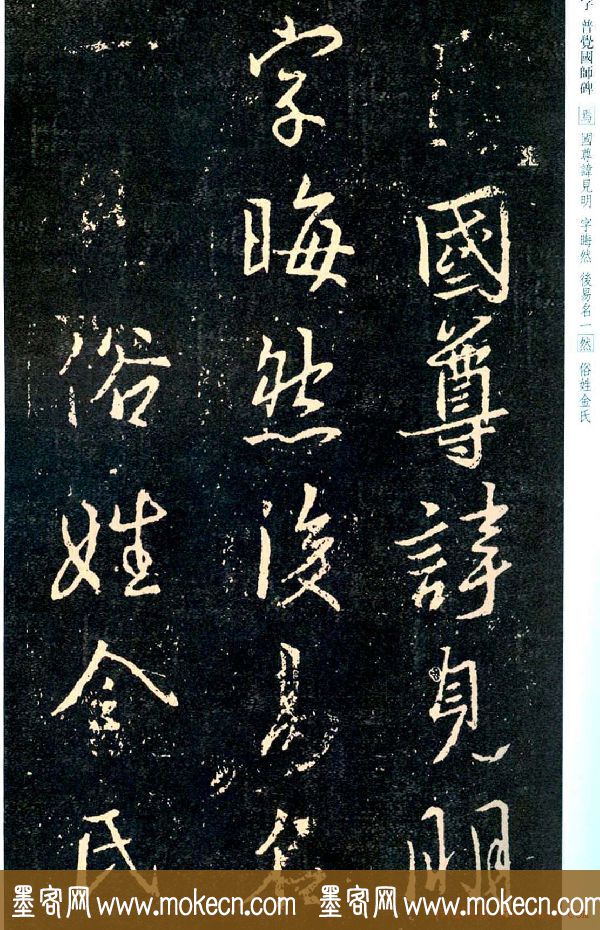 國尊諱見明
字晦然後易名
俗姓金氏
字 普覺國師碑 焉 國尊諱見明 字晦然 後易名一然 俗姓金氏
墨客网 www.mokecn.com 墨客网 www.mokecn.com